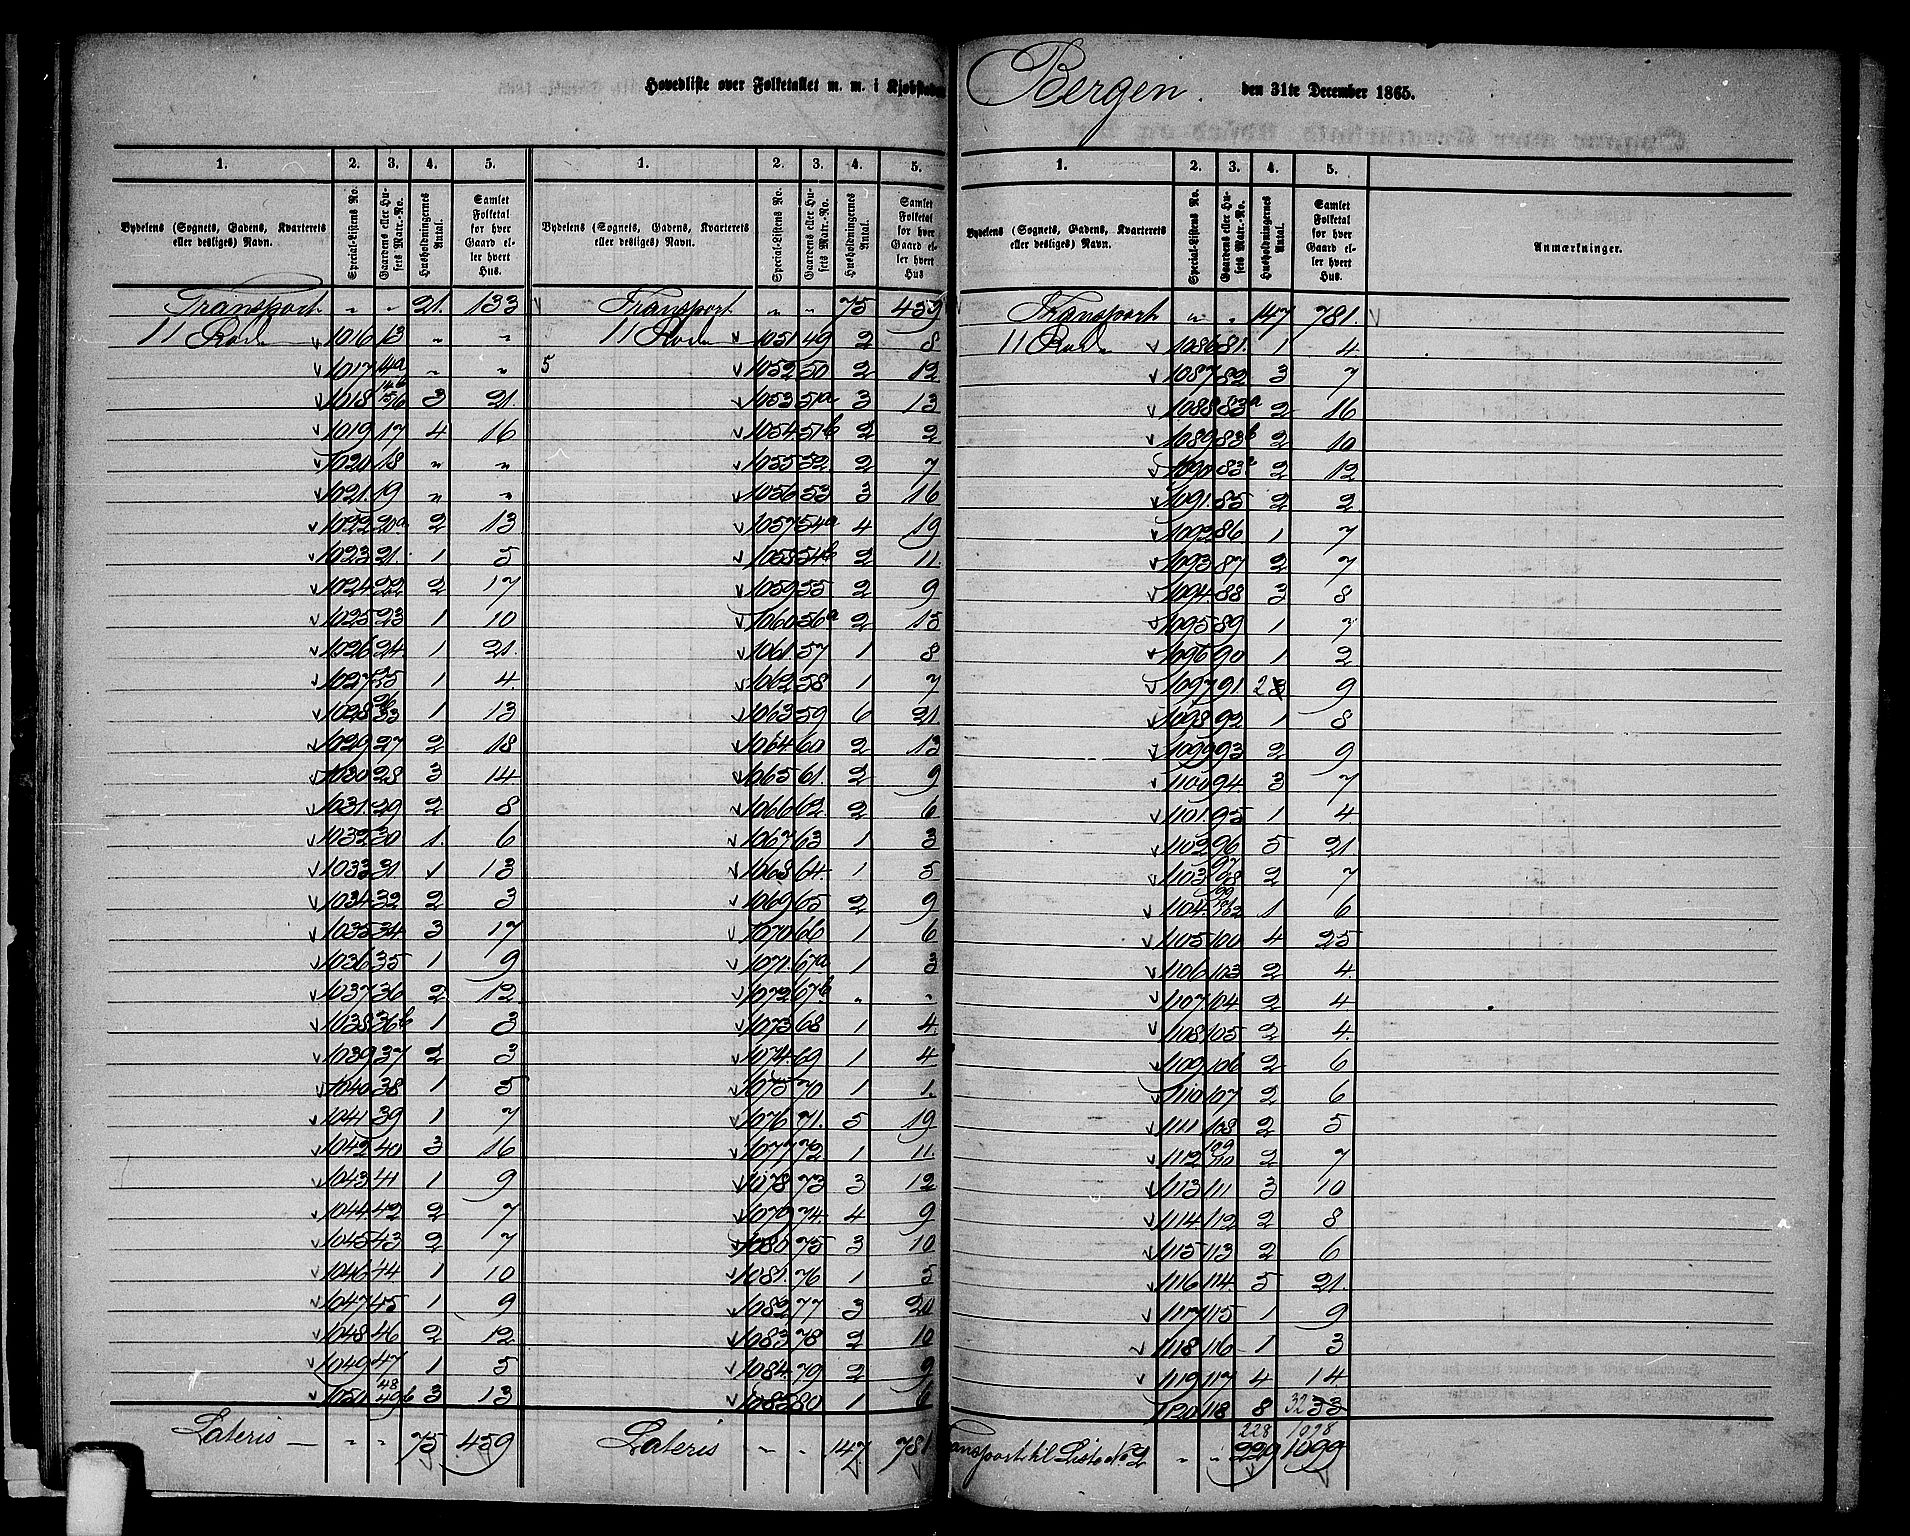 Hovedliste over Folketallet m. m. i Kjøbstaden Bergen. den 31te December 1865.
1. 2. 3. 4. 5.
Bydelens (Sognets, Gadens, Kvarterets eller desliges) Navn. Special-Listens No. Gaardens eller Husets Matr.-No. Husholdningernes Antal. Samlet Folketal for hver Gaard eller hvert Hus.
Transport " " 21. 133
11 Rode 1016 13 " "
1017 14a " "
1018 14b 15/16 3 21
1019 17 4 16
1020 18 " "
1021. 19 " "
1022 20a 2 13
1023 21. 1 5
1024 22 2 17
1025 23 1 10
1026 24 1 21.
1027 25 1 4.
1028 26 33 1 13
1029 27 2 18
1030 28 3 14
1031. 29 2 8
1032 30 1. 6
1033 31 1 13
1034 32 2 3
1035 34 3 17
1036 35 1 9
1037 36 2 12
1038 36b 1 3
1039 37 2 3
1040 38 1 5
1041 39 1 7
1042 40 3 16
1043 41 1 9
1044 42 2 7
1045 43 2 7
1046 44 1 10
1047 45 1 9
1048 46 2 12
1049 47 1 5
1050 48 49b 3 13
Lateris — " " 75 459
1. 2. 3. 4. 5.
Bydelens (Sognets, Gadens, Kvarterets eller desliges) Navn. Special-Listens No. Gaardens eller Husets Matr.-No. Husholdningernes Antal. Samlet Folketal for hver Gaard eller hvert Hus
Transport " " 75 459
11 Rode 1051 49 2 8
5 1052 50 2 12
1053 51a 3 13
1054 51b 2 2
1055 52. 2 7
1056 53 3 16
1057 54a 4 19
1058 54b 2 11.
1059 55 2 9
1060 56a 2 15
1061 57 1 8
1062 58 1 7
1063 59 6 21
1064 60 2 13
1065 61. 2 9
1066 62. 2 6
1067 63 1 3
1068 64 1 5
1069 65 2 9
1070 66 1 6
1071. 67a 1 3
1072 67b " "
1073 68 1 4.
1074. 69 1 4
1075 70 1 1.
1076 71. 5 19
1077 72 1 11.
1078 73 3 12
1079 74. 4 9
1080 75 3 10
1081. 76 1 5
1082 77 3 20
1083 78 2 10
1084. 79 2 9
1085 80 1 6
Lateris " " 147. 781
1. 2. 3. 4. 5.
Bydelens (Sognets, Gadens, Kvarterets eller desliges) Navn. Special-Listens No. Gaardens eller Husets Matr.-No. Husholdningernes Antal. Samlet Folketal for hver Gaard eller hvert Hus. Anmærkninger.
Transport " " 147 781.
11 Rode 1086 81. 1 4
1087 82 3 7
1088 83a 2 16
1089 83b 2 10
1090 83c 2 12
1091. 85 2 2
1092 86. 1 7
1093 87 2 7
1094. 88 3 8
1095 89 1 7
1096 90 1 2
1097 91 2 9
1098 92 1 8
1099 93 2 9
1100 94 3 7
1101. 95 1 4
1102 96 5 21
1103 97 98 2 7
1104. 99 102 1 6
1105 100 4 25
1106 103 2 4.
1107 104 2 4.
1108 105 2 4.
1109 106 2 6
1110 107 2 6
1111 108 2 5
1112 109 110 2 7
1113 111 3 10
1114 112 2 8
1115 113 2 6
1116 114. 5 21.
1117 115 1 9
1118 116 1 3
1119 117 4 14
1120 118 8 32 33
228 1098
Transport til Liste No. 2 " " 229 1099